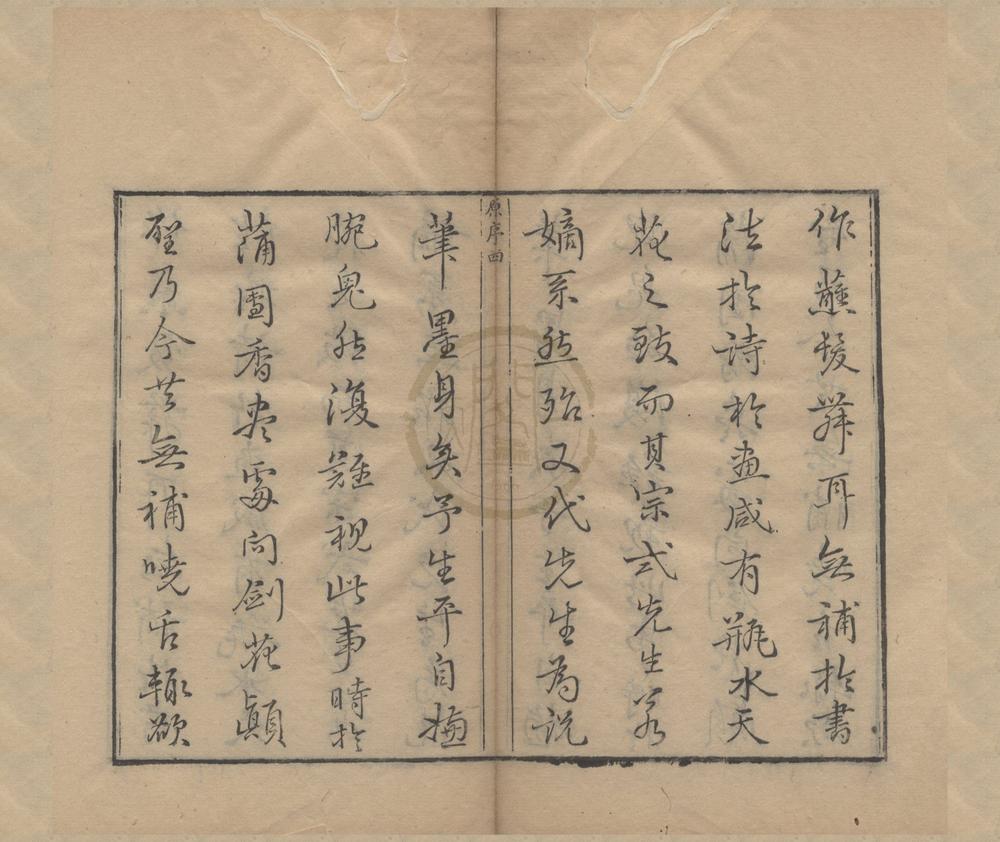 作蘸髮舞耳無補於書
法於詩於畫咸有瓶水天
花之致而其宗式先生若
嫡系然殆又代先生為說
原序四
筆墨身矣予生平自撫
腕鬼然復難視此事時於
蒲團香盡處問劍花顛
聖乃今世無補嘵舌輒欲